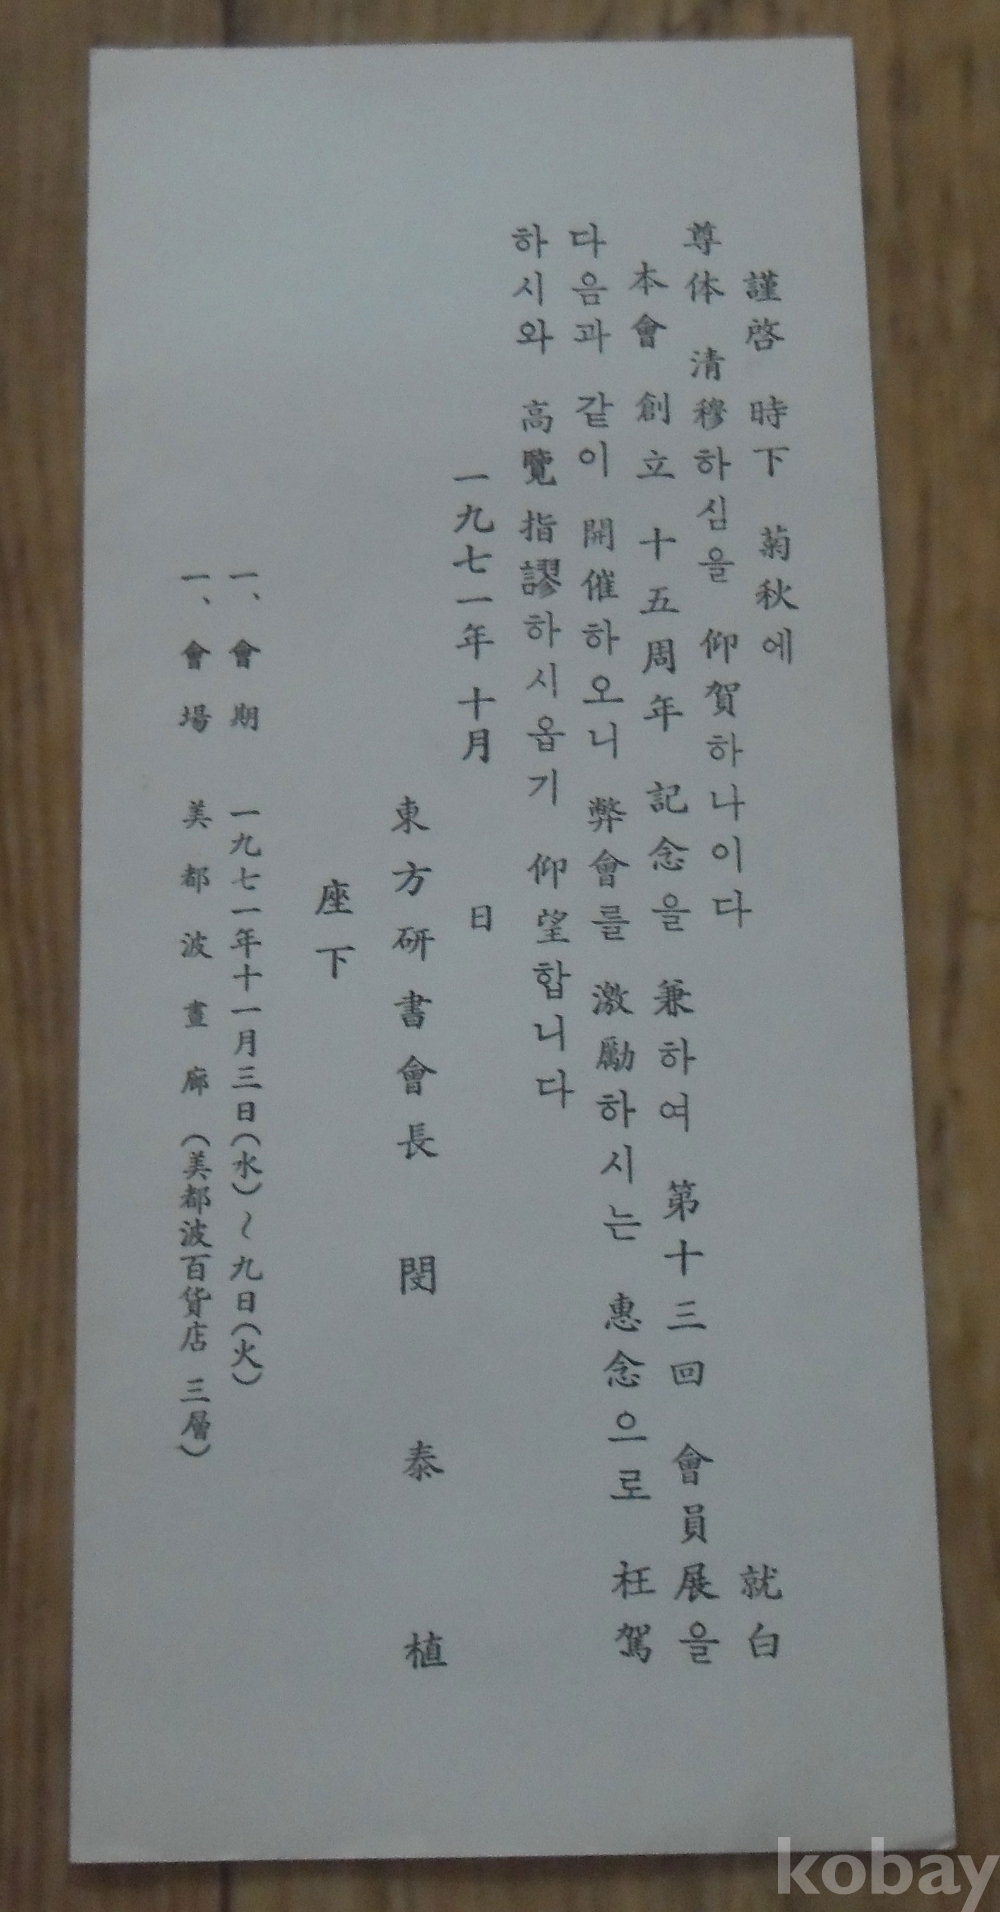 謹啓 時下 菊秋에
尊体 清穆하심을 仰賀하나이다 就白
本會 創立 十五周年 記念을 兼하여 第十三回 會員展을
다음과 같이 開催하오니 弊會를 激勵하시는 惠念으로 枉駕
하시와 高覽指謬하시옵기 仰望합니다
一九七一年 十月 日
東方研書會長 閔泰植
座下
一、會期 一九七一年十一月三日(水)~九日(火)
一、會場 美都波畫廊 (美都波百貨店 三層)
kobay